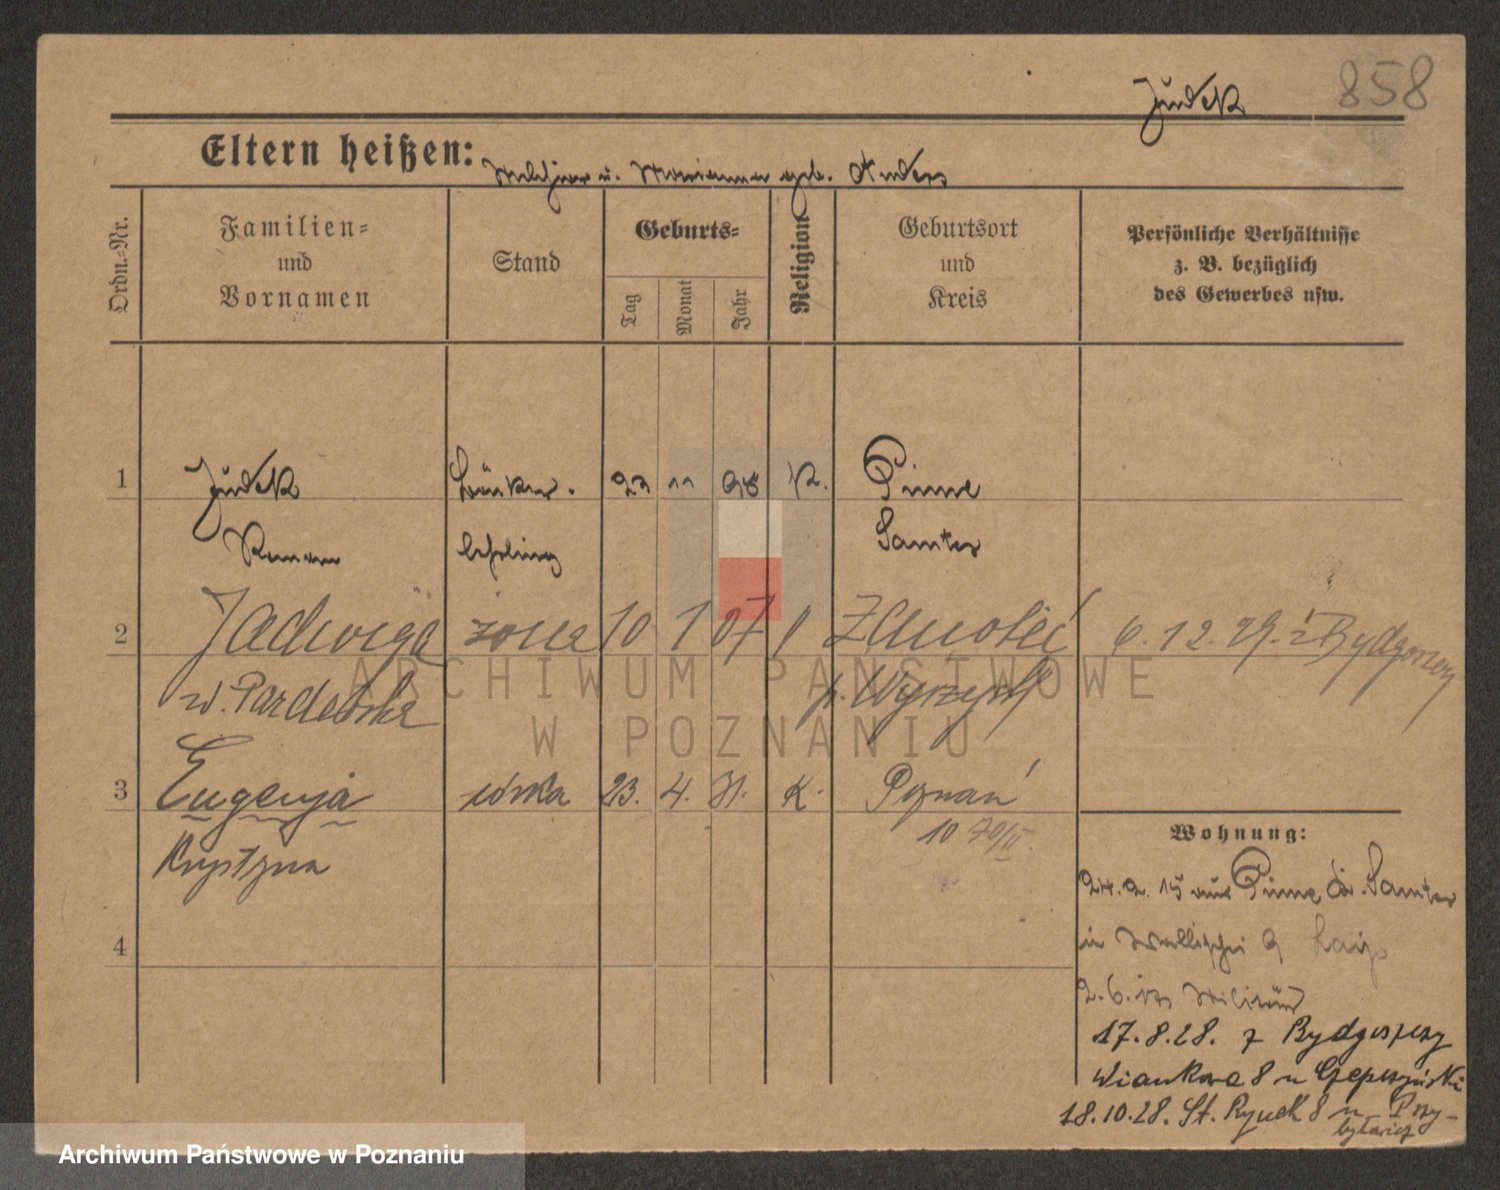 858
Judek
Eltern heißen: Melchior u. Marianna geb. Anders
Ordn.-Nr.
Familien-
und
Vornamen
Stand
Geburts-
Tag
Monat
Jahr
Religion
Geburtsort
und
Kreis
Persönliche Verhältnisse
z. B. bezüglich
des Gewerbes usw.
1 Judek 11 98 K. Pinne
Roman lehrling Samter
2 Jadwiga żona 10 1 07 6.12.29. z Bydgoszczy
p. Wyrzysk
3 Eugenja córka 23. 4. 31. K. Poznań
Krystyna 10
Wohnung:
24.2.15 aus Pinne Kr. Samter
in Wallischei 9
4
2.6.17 Militär
17.8.28. z Bydgoszczy
Wiankowa 8 u
18.10.28. St. Rynek 8 u Przy-
byłowicz
ARCHIWUM PAŃSTWOWE
W POZNANIU
Archiwum Państwowe w Poznaniu